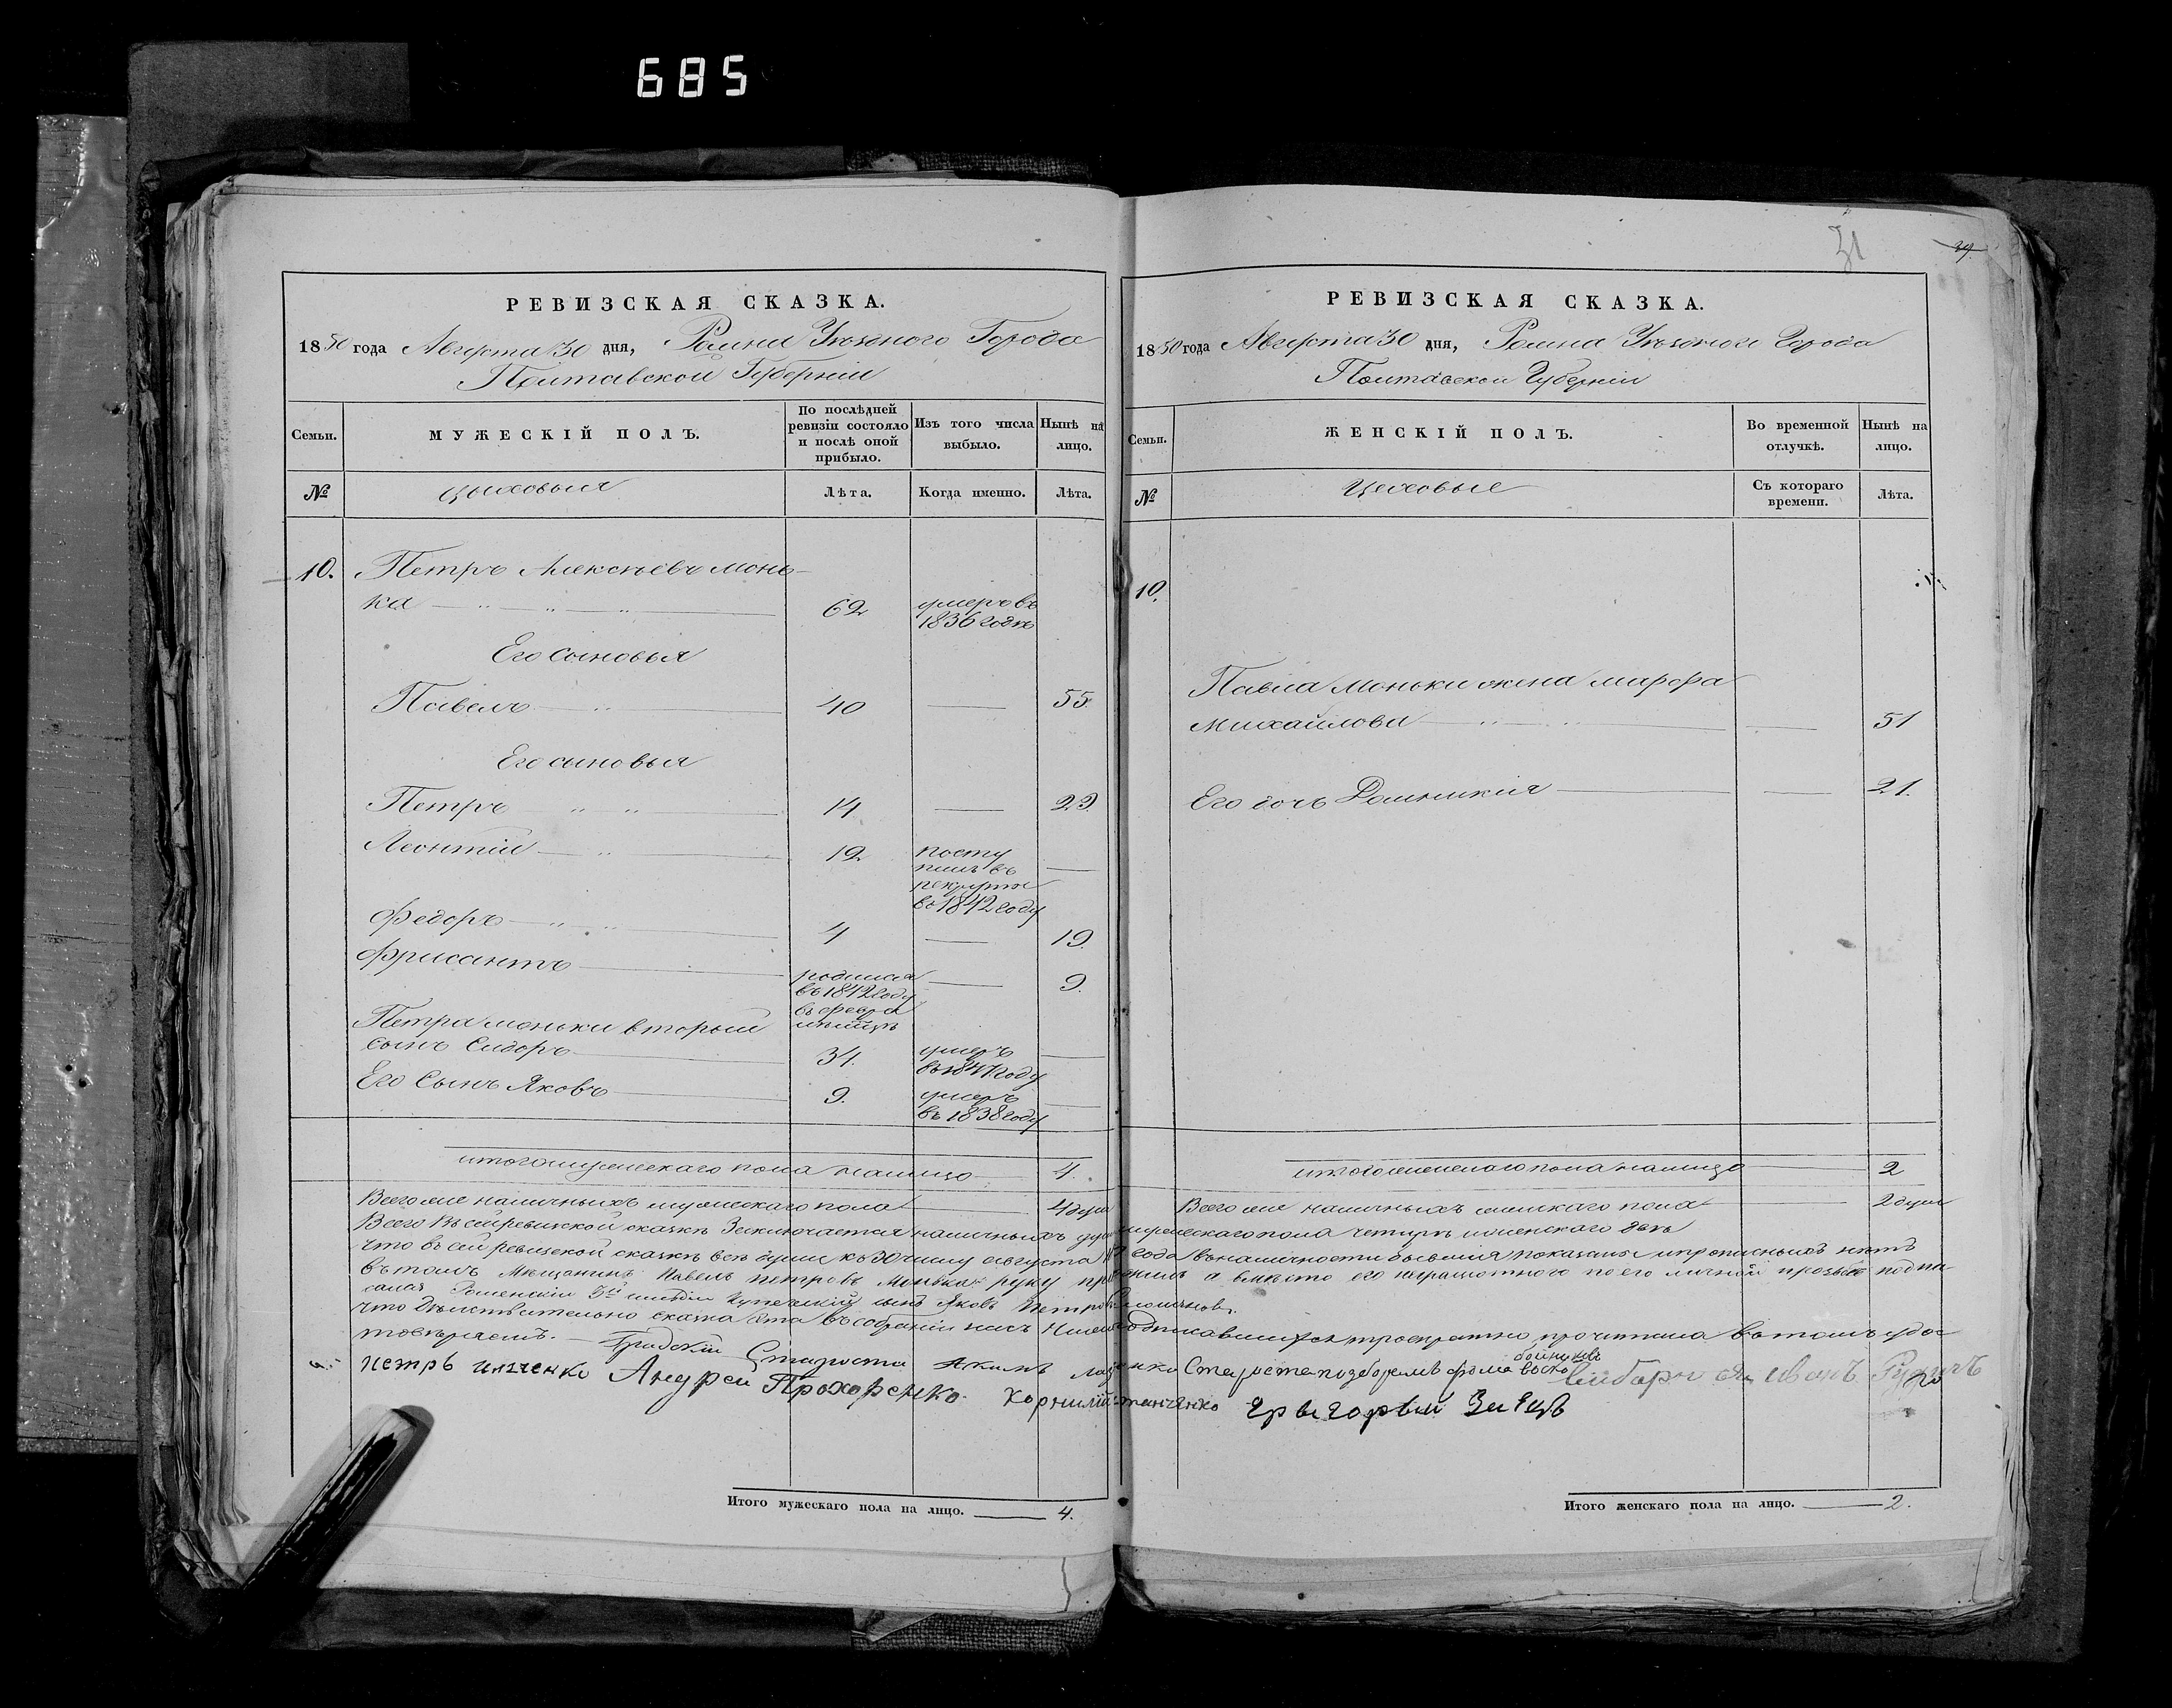 685
31
РЕВИЗСКАЯ СКАЗКА.
1850 года Августа 30 дня, Ромна Уездного Города
Полтавской Губерніи
Семьи. МУЖЕСКІЙ ПОЛЪ. По послѣдней ревизіи состояло и послѣ оной прибыло. Изъ того числа выбыло. Нынѣ на лицо.
№ Цеховыя Лѣта. Когда именно. Лѣта.
10. Петръ Алексѣевъ Монь-
ка 62 умеръ въ
1836 годѣ
Его Сыновья
Павелъ 40 55.
Его сыновья
Петръ 14 29
Леонтій 12 посту
пилъ въ
рекруты
въ 1842 году
Федоръ 4 19.
Фрисантъ родился
въ 1842 году
въ февра 9.
Петра Моньки вторый
сынъ Сидоръ 34. умеръ
въ 1847 году
Его Сынъ Яковъ 9. умеръ
въ 1838 году
итого мужескаго пола налицо 4.
Всего же наличныхъ мужескаго пола 4 души
РЕВИЗСКАЯ СКАЗКА.
1850 года Августа 30 дня, Ромна Уезднога Города
Полтавской Губерніи
Семьи. ЖЕНСКІЙ ПОЛЪ. Во временной отлучкѣ. Нынѣ на лицо.
№ Цеховые Съ котораго времени. Лѣта.
10.
Павла Моньки жена Марфа
Михайлова 51
Его дочь Домникия 21.
итого женскаго пола налицо 2
Всего же наличныхъ женскаго пола 2 души
Всего въ сей ревизской сказкѣ Заключается наличныхъ душъ мужескаго пола четыре и женскаго двѣ
что въ сей ревизской сказкѣ всѣ души къ 30 числу августа года въ наличности бывшия показаны и прописныхъ нѣтъ
въ томъ Мѣщанинъ Павелъ Петровъ Монька руку приложилъ а вмѣсто его неграмотного по его личной прозбѣ подпи-
сался Роменскій 3й гильдіи Купеческій сынъ Яковъ Петровъ
что дѣйствительно сказка эта въ собраніи насъ Ниже подписавшихся троекратно прочитана въ томъ удос
товѣряемъ. Градскій Староста Акимъ
Петръ Ильченко Андрей Прохоренко Корнилій Григорый Заецъ
Иванъ
Итого мужескаго пола на лицо. 4.
Итого женскаго пола на лицо. 2.